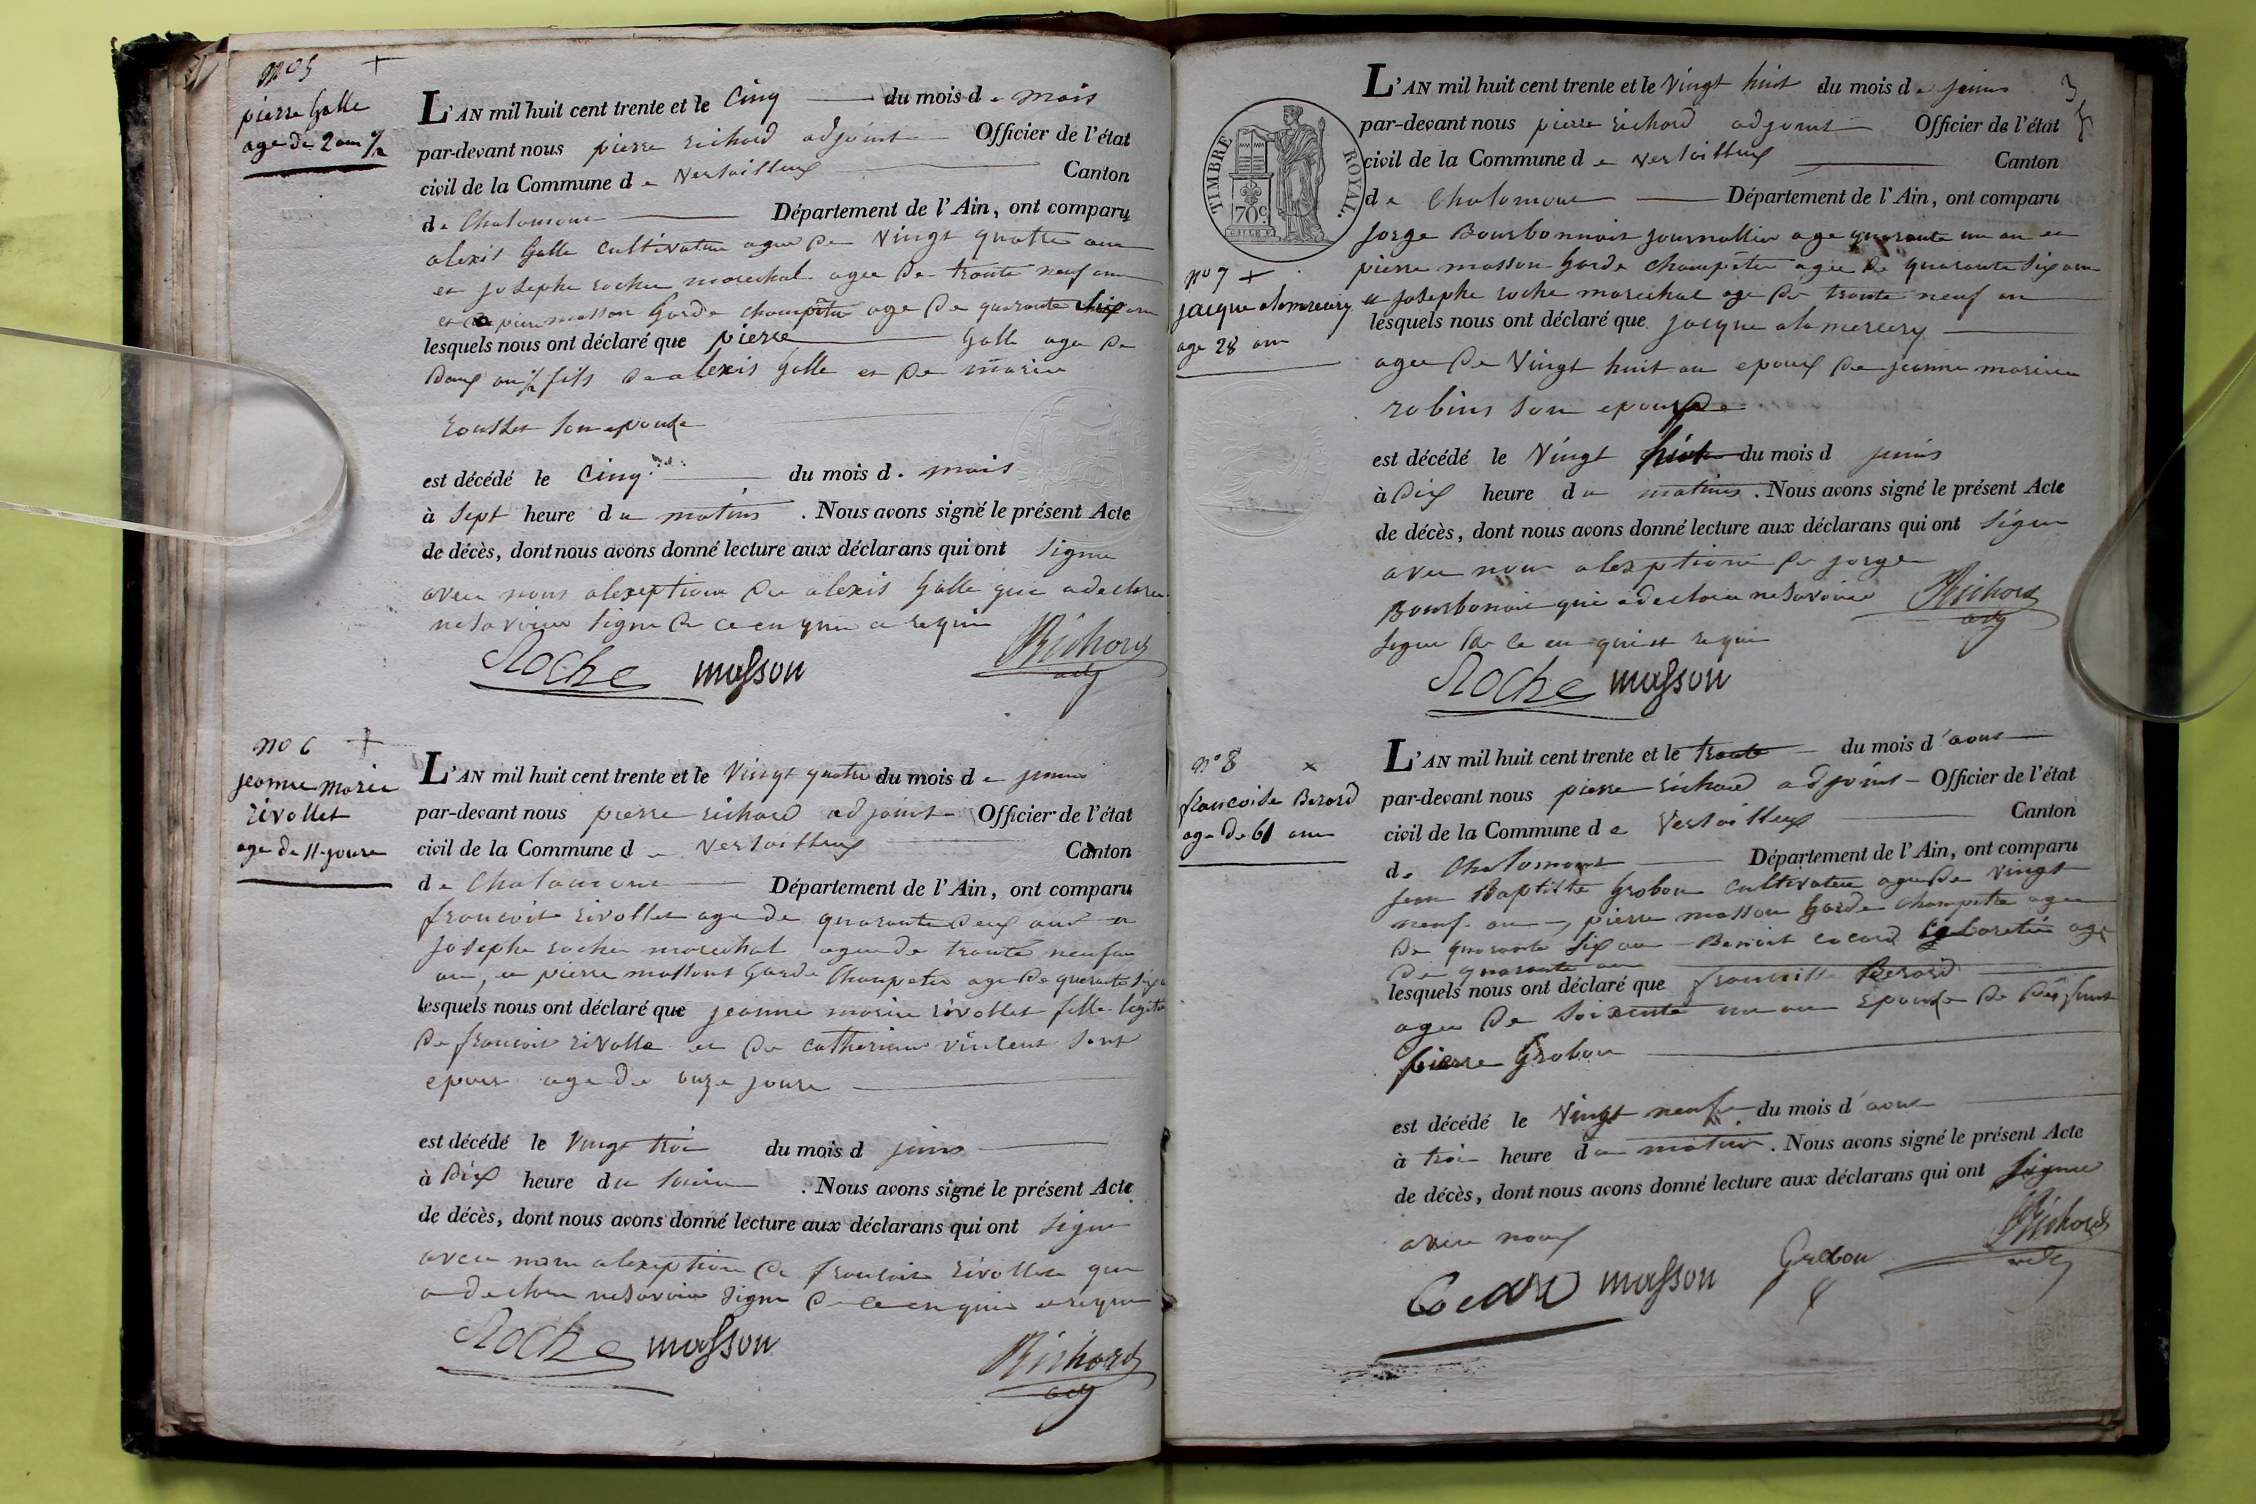 no 5 +
pierre Galle
age de 2 ans ½
L'AN mil huit cent trente et le Cinq du mois de mais
par-devant nous pierre richard adjoint Officier de l'état
civil de la Commune de Versailleux Canton
de Chalamont Département de l'Ain, ont comparu
alexis Galle cultivateur agee de vingt quatre ans
et Josephe roche marechal agee de trante neuf ans
et pierre masson Garde champêtre age de quarante six ans
lesquels nous ont déclaré que pierre Galle age de
deux an ½ fils de alexis Galle et de marie
rousset son epouse
est décédé le Cinq du mois d. mais
à Sept heure du matins. Nous avons signé le présent Acte
de décès, dont nous avons donné lecture aux déclarans qui ont signe
avec nous alexeption de alexis Galle qui adeclare
nesavoire signe de ce enquis e requis
Roche masson Richard
adj
no 6 +
jeanne marie
rivollet
age de 11 joure
L'AN mil huit cent trente et le Vingt quatre du mois de juins
par-devant nous pierre richard adjoint Officier de l'état
civil de la Commune de Versailleux Canton
de Chalamont Département de l'Ain, ont comparu
francois rivollet age de quarante deux ans et
Josephe roche marechal age de trante neuf an
an, et pierre massont Garde Champetre age de quarante six
lesquels nous ont déclaré que jeanne marie rivollet fille legiti
de francois rivolle et de catherine vincent sont
epouse age de onze joure
est décédé le Vingt troi du mois d juins
à Dix heure du soire. Nous avons signé le présent Acte
de décès, dont nous avons donné lecture aux déclarans qui ont signe
avec nous alexeption de francois rivollet que
a declare nesavoire signe de ce enquis e requis
Roche masson Richard
adj
3
TIMBRE ROYAL.
70 c.
no 7 +
jacque alamercery
age 28 an
L'AN mil huit cent trente et le Vingt huit du mois de juins
par-devant nous pierre richard adjoint Officier de l'état
civil de la Commune de Versailleux Canton
de Chalamont Département de l'Ain, ont comparu
jorge Bourbonnais journallier age quarante un an et
pierre masson Garde champêtre agee de quarante six ans
et Josephe roche marechal age de trante neuf an
lesquels nous ont déclaré que jacque alamercery
agee de Vingt huit an epoux de jeanne marie
robins son epouse
est décédé le Vingt huit du mois d juins
à Dix heure du matins. Nous avons signé le présent Acte
de décès, dont nous avons donné lecture aux déclarans qui ont signe
avec nous alexptione de jorge
Bourbonais qui adeclare nesavoire
signe de ce en quis et requis
Richard
adj
Roche masson
no 8 x
francoise Berard
age de 61 ans
L'AN mil huit cent trente et le trante du mois d'aout
par-devant nous pierre richard adjoint Officier de l'état
civil de la Commune de Versailleux Canton
de Chalamont Département de l'Ain, ont comparu
jean Baptiste Grobon cultivateur age de vingt
neuf an, pierre masson Garde Champetre agee
de quarante six an Benoit cocard Cabaretié age
de quarante an
lesquels nous ont déclaré que francoise Berard
agee de soixente un an Epouse de defunt
pierre Grobon
est décédé le Vingt neuf du mois d'aout
à troi heure du matin. Nous avons signé le présent Acte
de décès, dont nous avons donné lecture aux déclarans qui ont signe
avec nous
Cocard masson Grobon Richard
adj